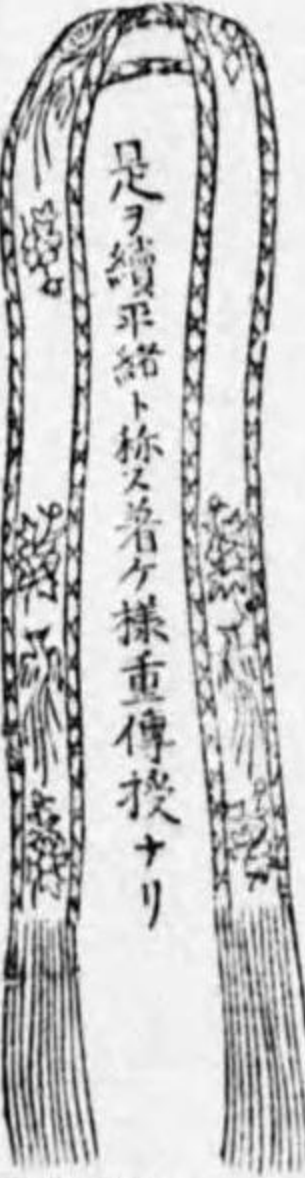 是ヲ續平緒ト称ス着ケ様重傳授ナリ